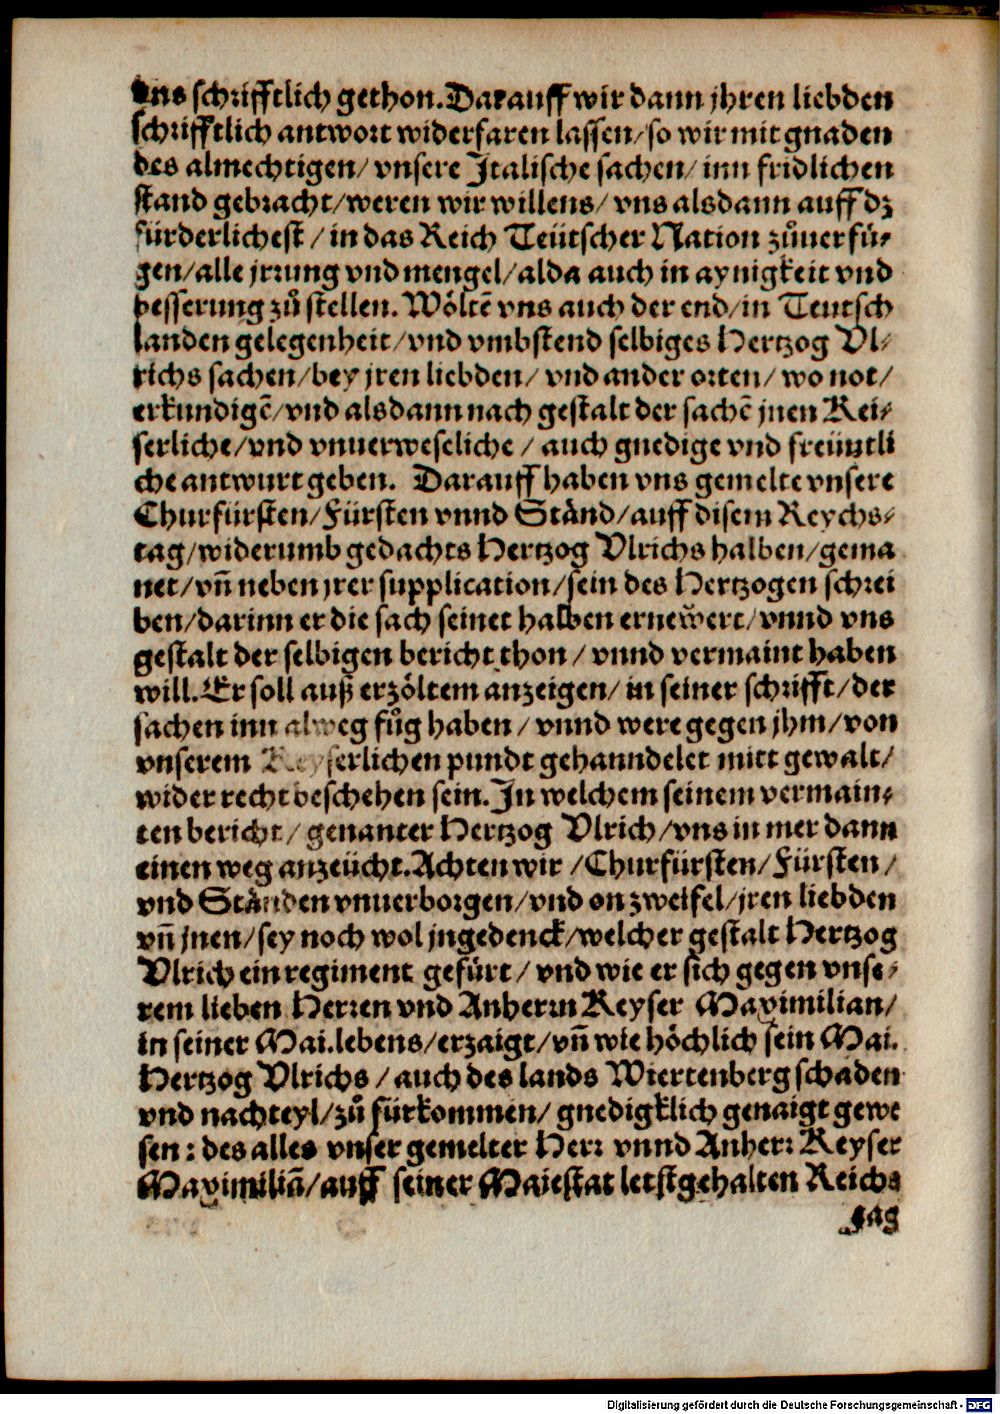 vns schrifftlich gethon. Darauff wir dann jhren liebden
schrifftlich antwort widerfaren lassen/ so wir mit gnaden
des almechtigen/ vnsere Italische sachen/ inn fridlichen
stand gebracht/ weren wir willens/ vns alsdann auff dz
fürderlichest/ in das Reich Teütscher Nation zůuerfü-
gen/ alle jrrung vnd mengel/ alda auch in aynigkeit vnd
besserung zů stellen. Wöltē vns auch der end/ in Teutsch
landen gelegenheit/ vnd vmbstend selbiges Hertzog Vl-
richs sachen/ bey jren liebden/ vnd ander orten/ wo not/
erkundigē/ vnd alsdann nach gestalt der sachē jnen Kei-
serliche/ vnd vnuerweseliche/ auch gnedige vnd freüntli
che antwurt geben. Darauff haben vns gemelte vnsere
Churfürsten/ Fürsten vnnd Ständ/ auff disem Reychs-
tag/ widerumb gedachts Hertzog Vlrichs halben/ gema
net/ vn̄ neben jrer supplication/ sein des Hertzogen schrei
ben/ darinn er die sach seinet halben ernewert/ vnnd vns
gestalt der selbigen bericht thon/ vnnd vermaint haben
will. Er soll auß erzöltem anzeigen/ in seiner schrifft/ der
sachen inn alweg fůg haben/ vnnd were gegen jhm/ von
vnserem Keyserlichen pundt gehanndelet mitt gewalt/
wider recht beschehen sein. In welchem seinem vermain-
ten bericht/ genanter Hertzog Vlrich/ vns in mer dann
einen weg anzeücht. Achten wir/ Churfürsten/ Fürsten/
vnd Ständen vnuerborgen/ vnd on zweifel/ jren liebden
vn̄ jnen/ sey noch wol jngedenck/ welcher gestalt Hertzog
Vlrich ein regiment gefürt/ vnd wie er sich gegen vnse-
rem lieben Herren vnd Anherrn Keyser Maximilian/
in seiner Mai. lebens/ erzaigt/ vn̄ wie höchlich sein Mai.
Hertzog Vlrichs/ auch des lands Wiertenberg schaden
vnd nachteyl/ zů fürkommen/ gnedigklich genaigt gewe
sen: des alles vnser gemelter Herr vnnd Anherr Keyser
Maximiliā/ auff seiner Maiestat letstgehalten Reichs
tag
Digitalisierung gefördert durch die Deutsche Forschungsgemeinschaft - DFG